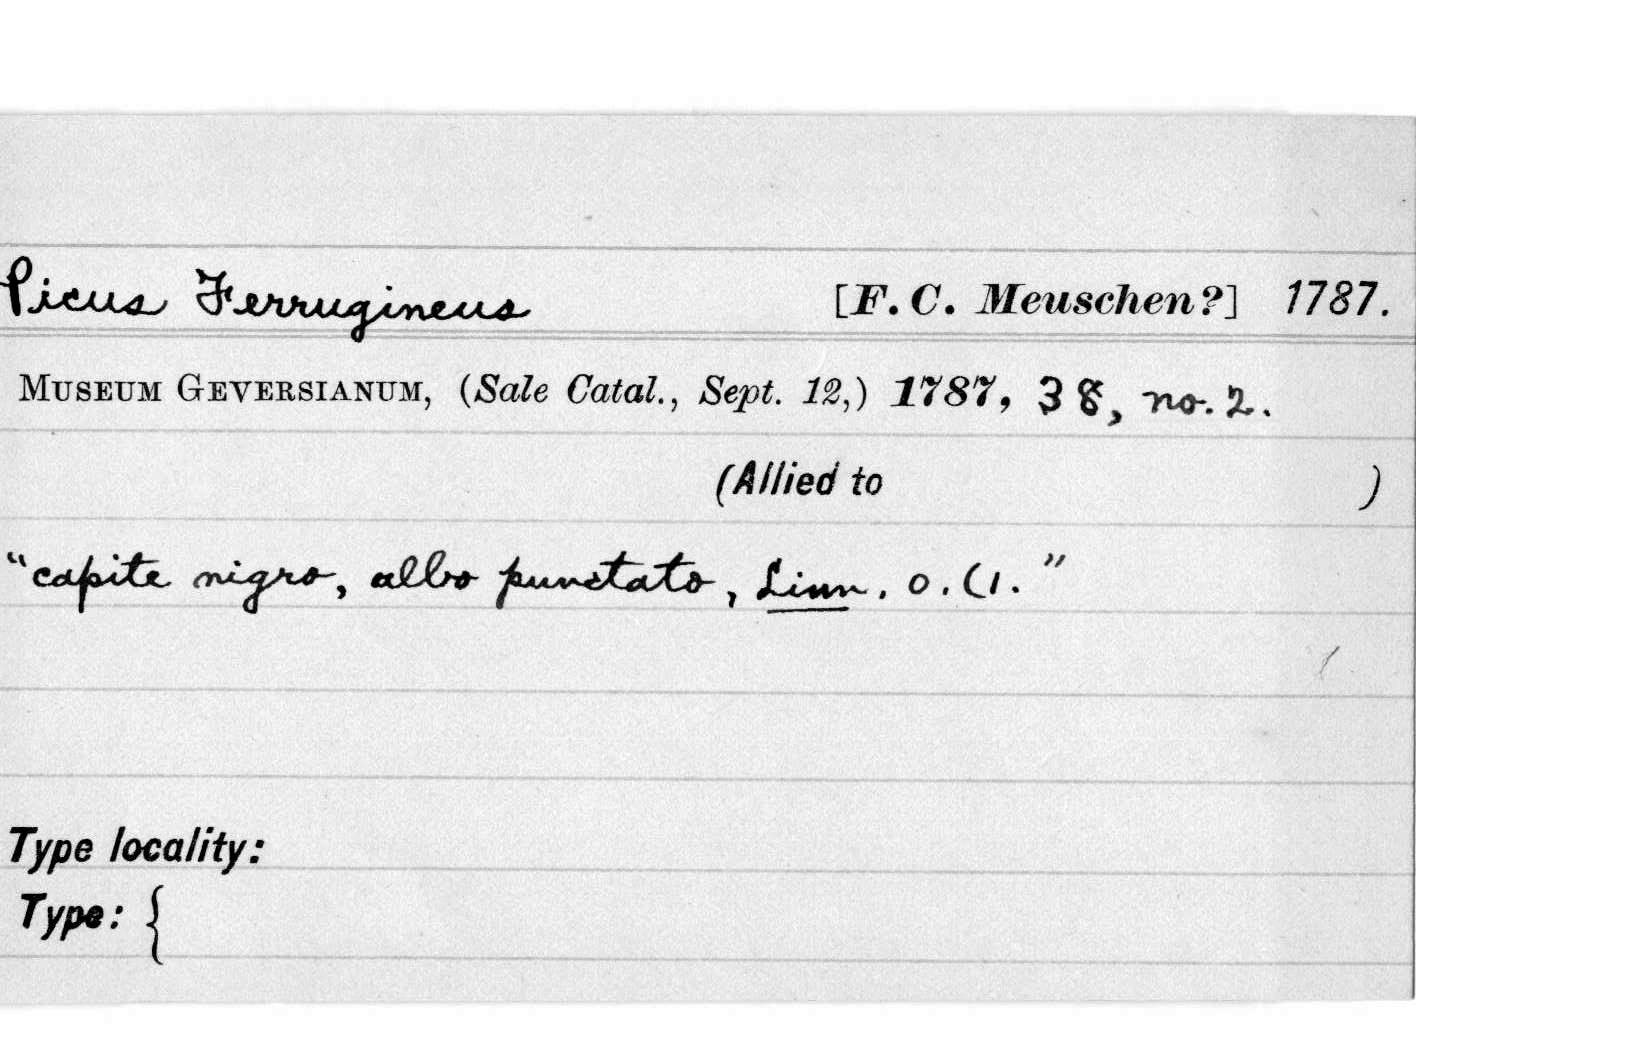 Picus Ferrugineus [F. C. Meuschen?] 1787.
Museum Geversianum, (Sale Catal., Sept. 12,) 1787, 38, no. 2.
(Allied to )
"capite nigro, albo punctato, Linn. o. (1."
Type locality:
Type: {